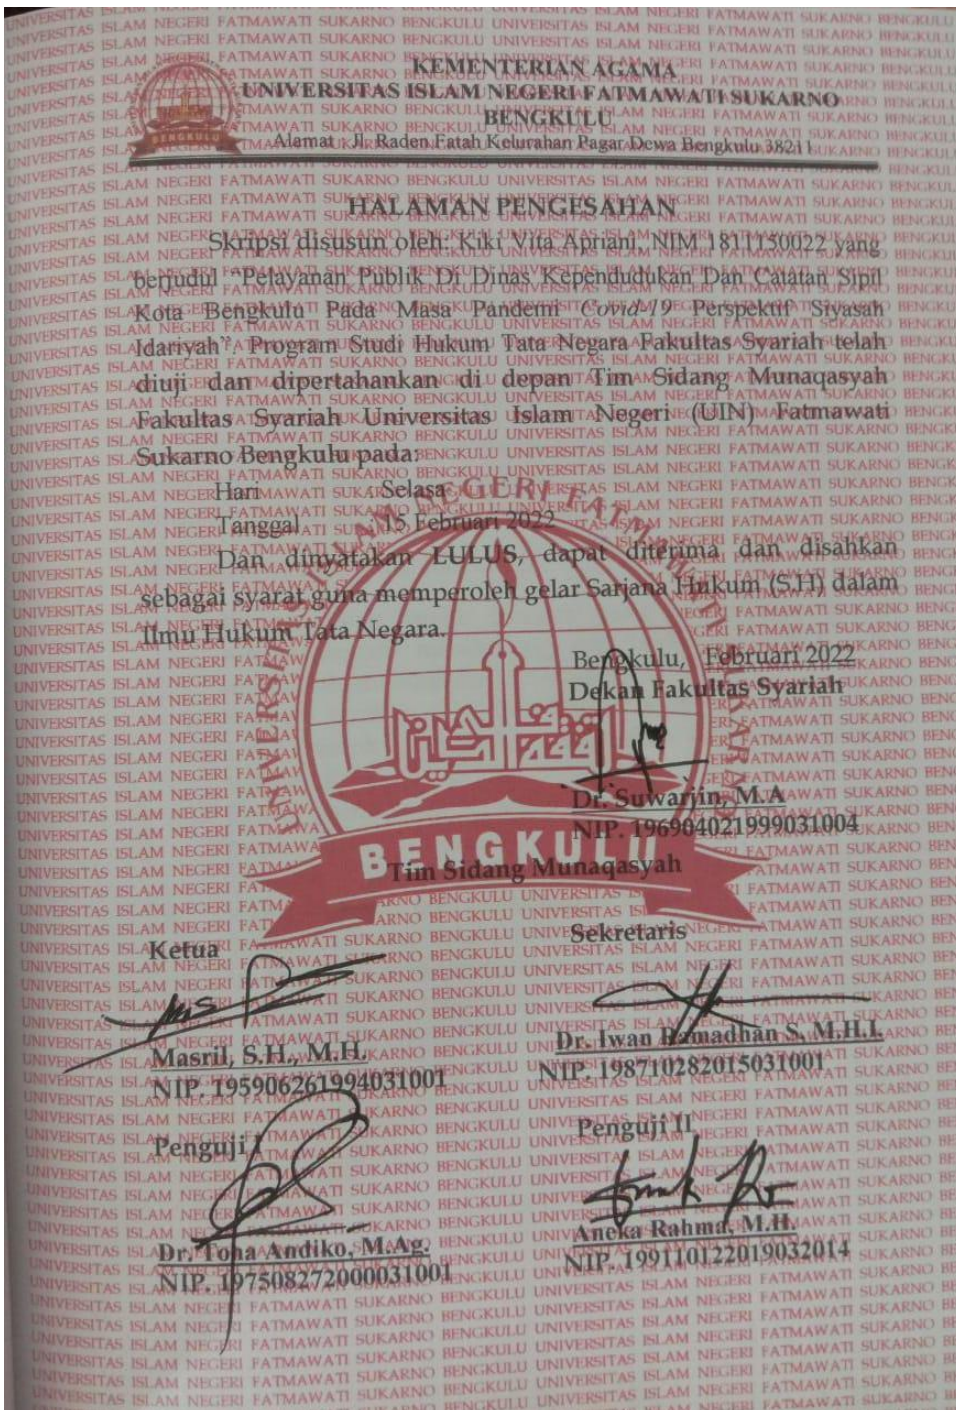 KEMENTERIAN AGAMA
UNIVERSITAS ISLAM NEGERI FATMAWATI SUKARNO
BENGKULU
Alamat : Jl. Raden Fatah Kelurahan Pagar Dewa Bengkulu 38211
HALAMAN PENGESAHAN
Skripsi disusun oleh: Kiki Vita Apriani, NIM 1811150022 yang
berjudul "Pelayanan Publik Di Dinas Kependudukan Dan Catatan Sipil
Kota Bengkulu Pada Masa Pandemi Covid-19 Perspektif Siyasah
Idariyah". Program Studi Hukum Tata Negara Fakultas Syariah telah
diuji dan dipertahankan di depan Tim Sidang Munaqasyah
Fakultas Syariah Universitas Islam Negeri (UIN) Fatmawati
Sukarno Bengkulu pada:
Hari : Selasa
Tanggal : 15 Februari 2022
Dan dinyatakan LULUS, dapat diterima dan disahkan
sebagai syarat guna memperoleh gelar Sarjana Hukum (S.H) dalam
Ilmu Hukum Tata Negara.
Bengkulu, Februari 2022
Dekan Fakultas Syariah
Dr. Suwarjin, M.A
NIP. 196904021999031004
UNIVERSITAS ISLAM NEGERI FATMAWATI SUKARNO
BENGKULU
Tim Sidang Munaqasyah
Ketua
Sekretaris
Masril, S.H., M.H.
NIP. 195906261994031001
Dr. Iwan Ramadhan S, M.H.I.
NIP. 198710282015031001
Penguji I
Penguji II
Dr. Toha Andiko, M.Ag.
NIP. 197508272000031001
Aneka Rahma, M.H.
NIP. 199110122019032014